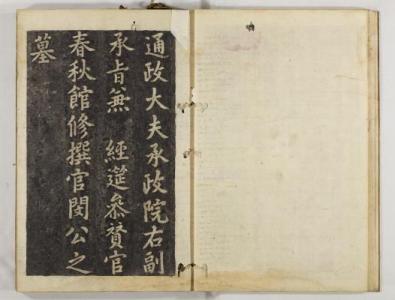 通政大夫承政院右副
承旨兼 經筵參贊官
春秋館修撰官閔公之
墓